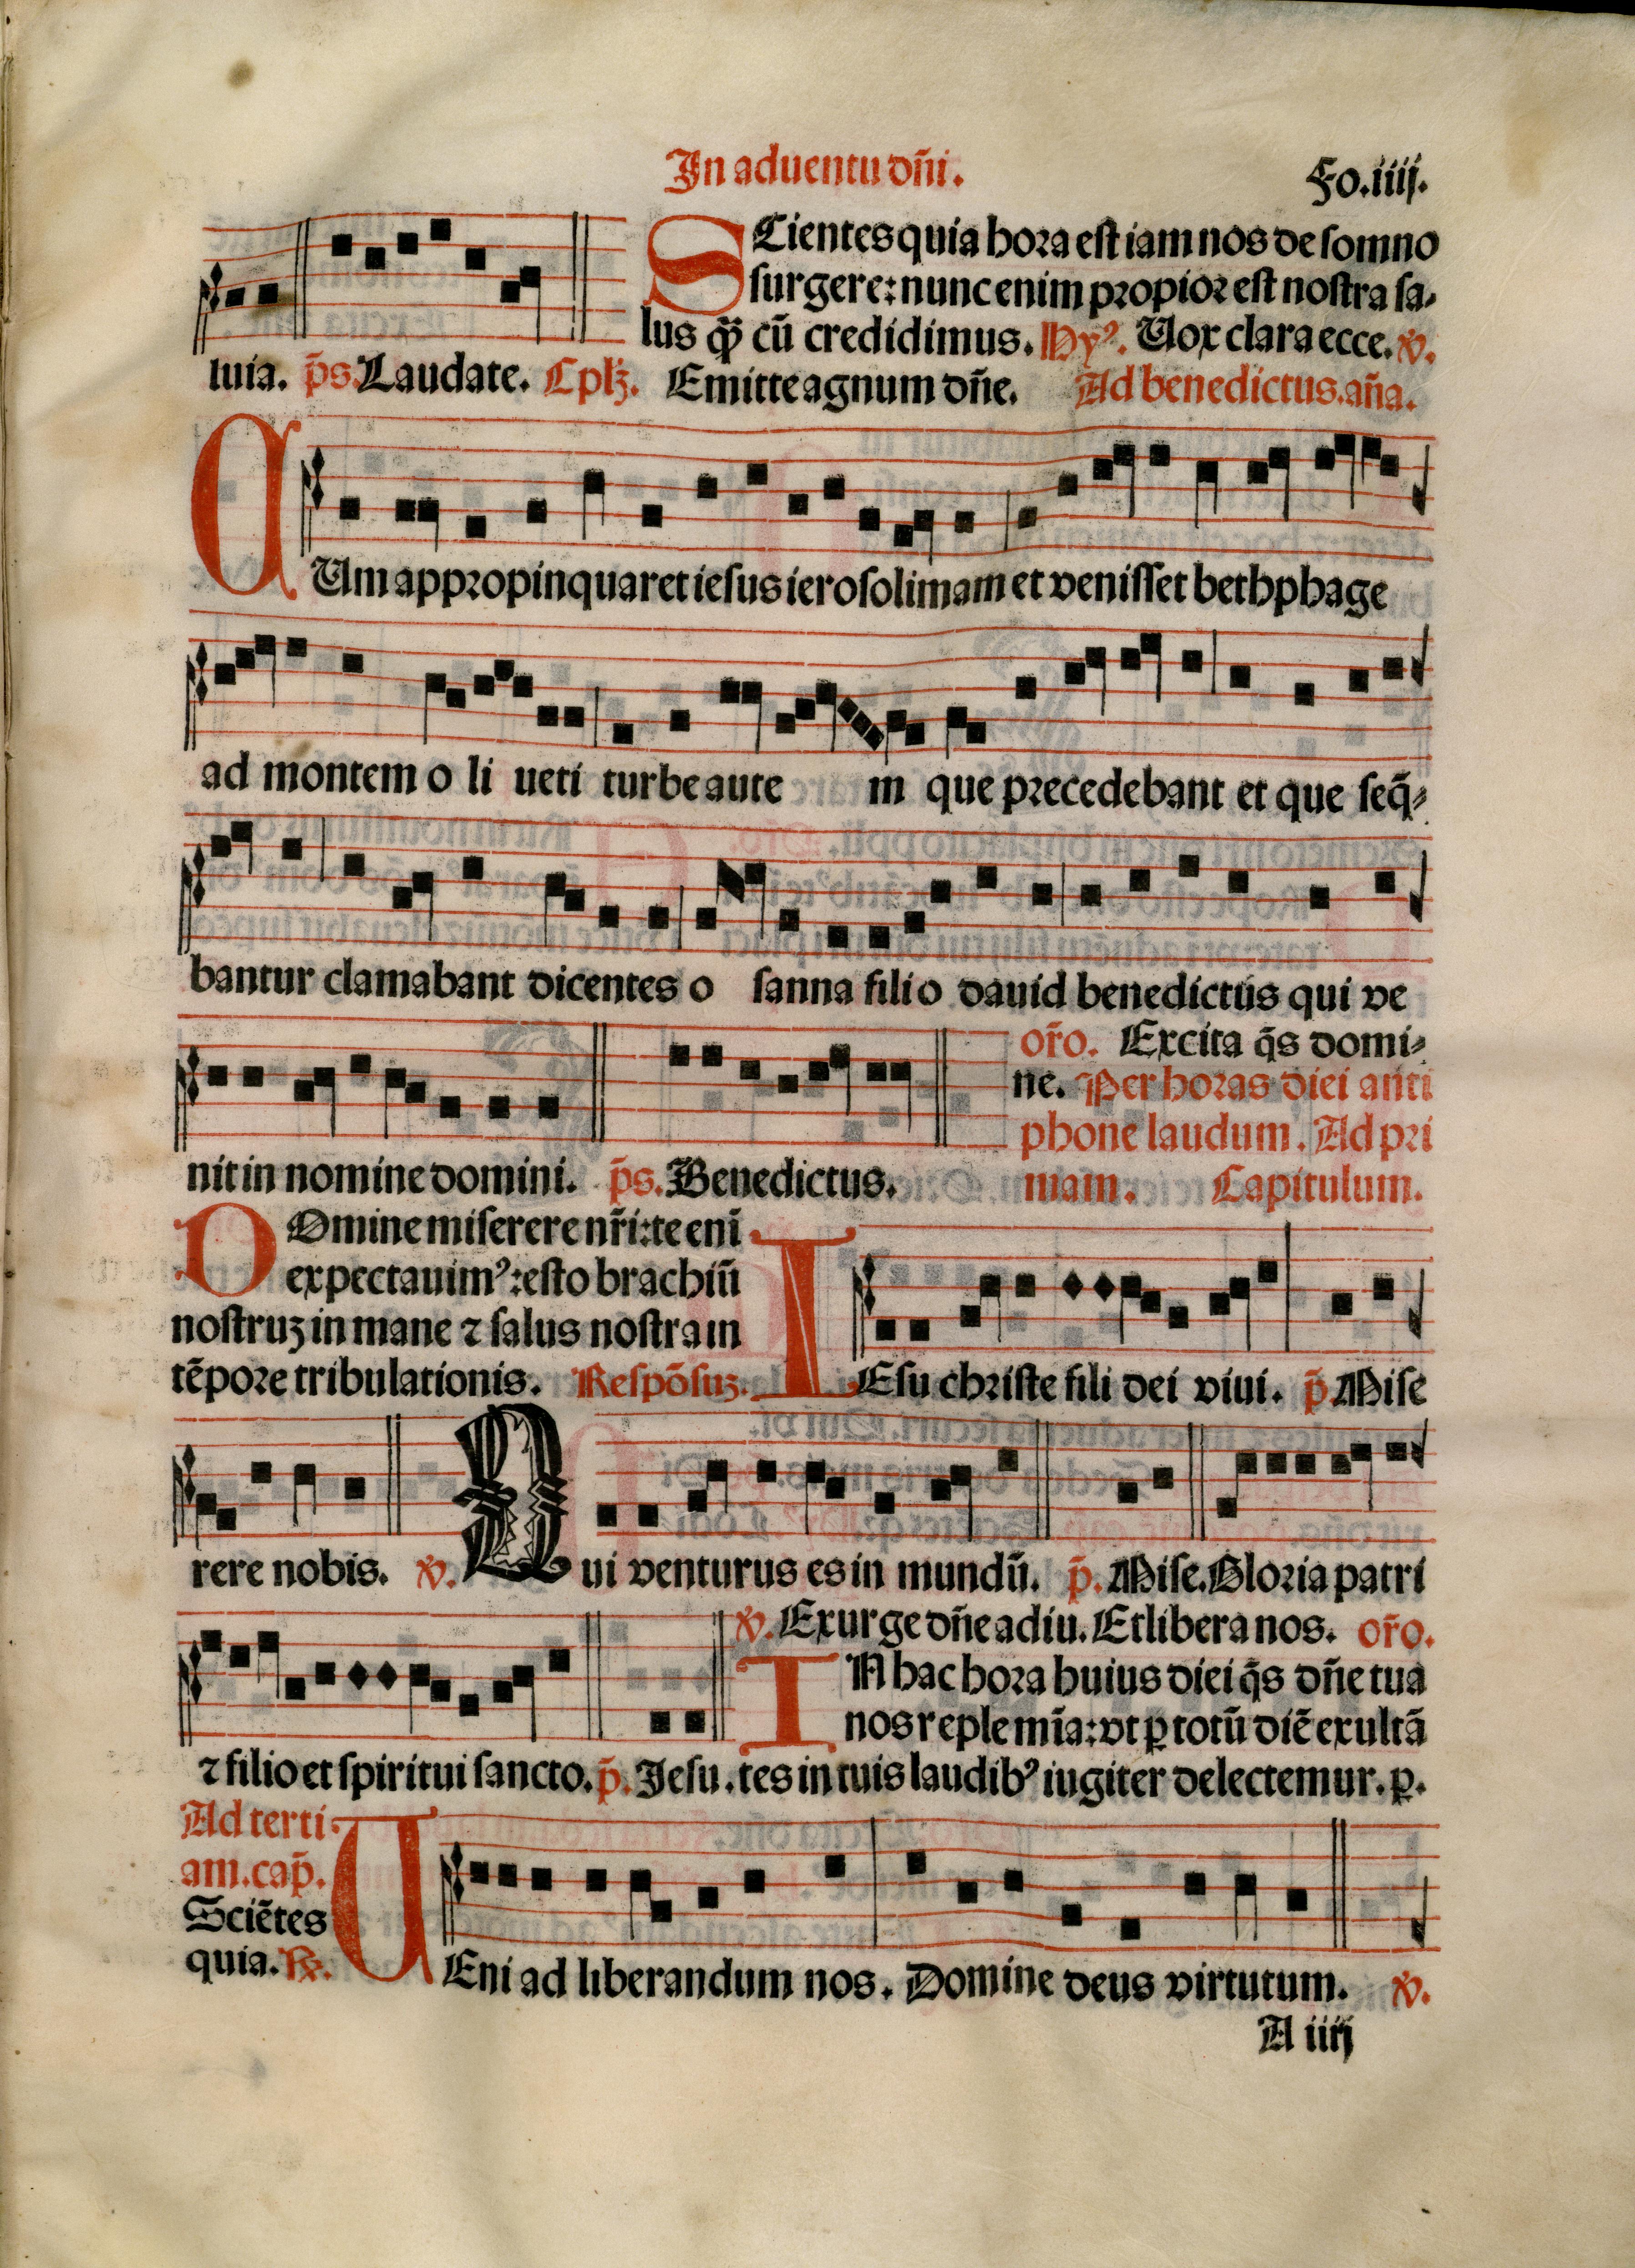 In aduentu dn̄i.
Fo.iiij.
SCientes quia hora est iam nos de somno
surgere: nunc enim propior est nostra sa-
lus qͣȝ cū credidimus. Hyꝰ. Uox clara ecce. ℣.
luia. p̄s. Laudate. Cplꝫ. Emitte agnum dn̄e. Ad benedictus. an̄a.
CUm appropinquaret iesus ierosolimam et venisset bethphage
ad montem o li ueti turbe aute m que precedebant et que seq̄-
bantur clamabant dicentes o sanna fili o dauid benedictus qui ve
nit in nomine domini. p̄s. Benedictus.
or̄o. Excita q̄s domi-
ne. Per horas diei anti
phone laudum. Ad pri
mam. Capitulum.
DOmine miserere nr̄i: te enī
expectauimꝰ: esto brachiū
nostruꝫ in mane ⁊ salus nostra in
tēpore tribulationis. Respōsuꝫ.
IEsu christe fili dei viui. p̄. Mise
rere nobis. ℣. Qui venturus es in mundū. p̄. Mise. Gloria patri
⁊ filio et spiritui sancto. p̄. Jesu.
℣. Exurge dn̄e adiu. Et libera nos. or̄o.
IN hac hora huius diei q̄s dn̄e tua
nos reple mīa: vt ꝑ totū diē exultā
tes in tuis laudibꝰ iugiter delectemur. ꝑ.
Ad terti-
am. cap̄.
Sciētes
quia. ℟.
UEni ad liberandum nos. Domine deus virtutum. ℣.
A iiij